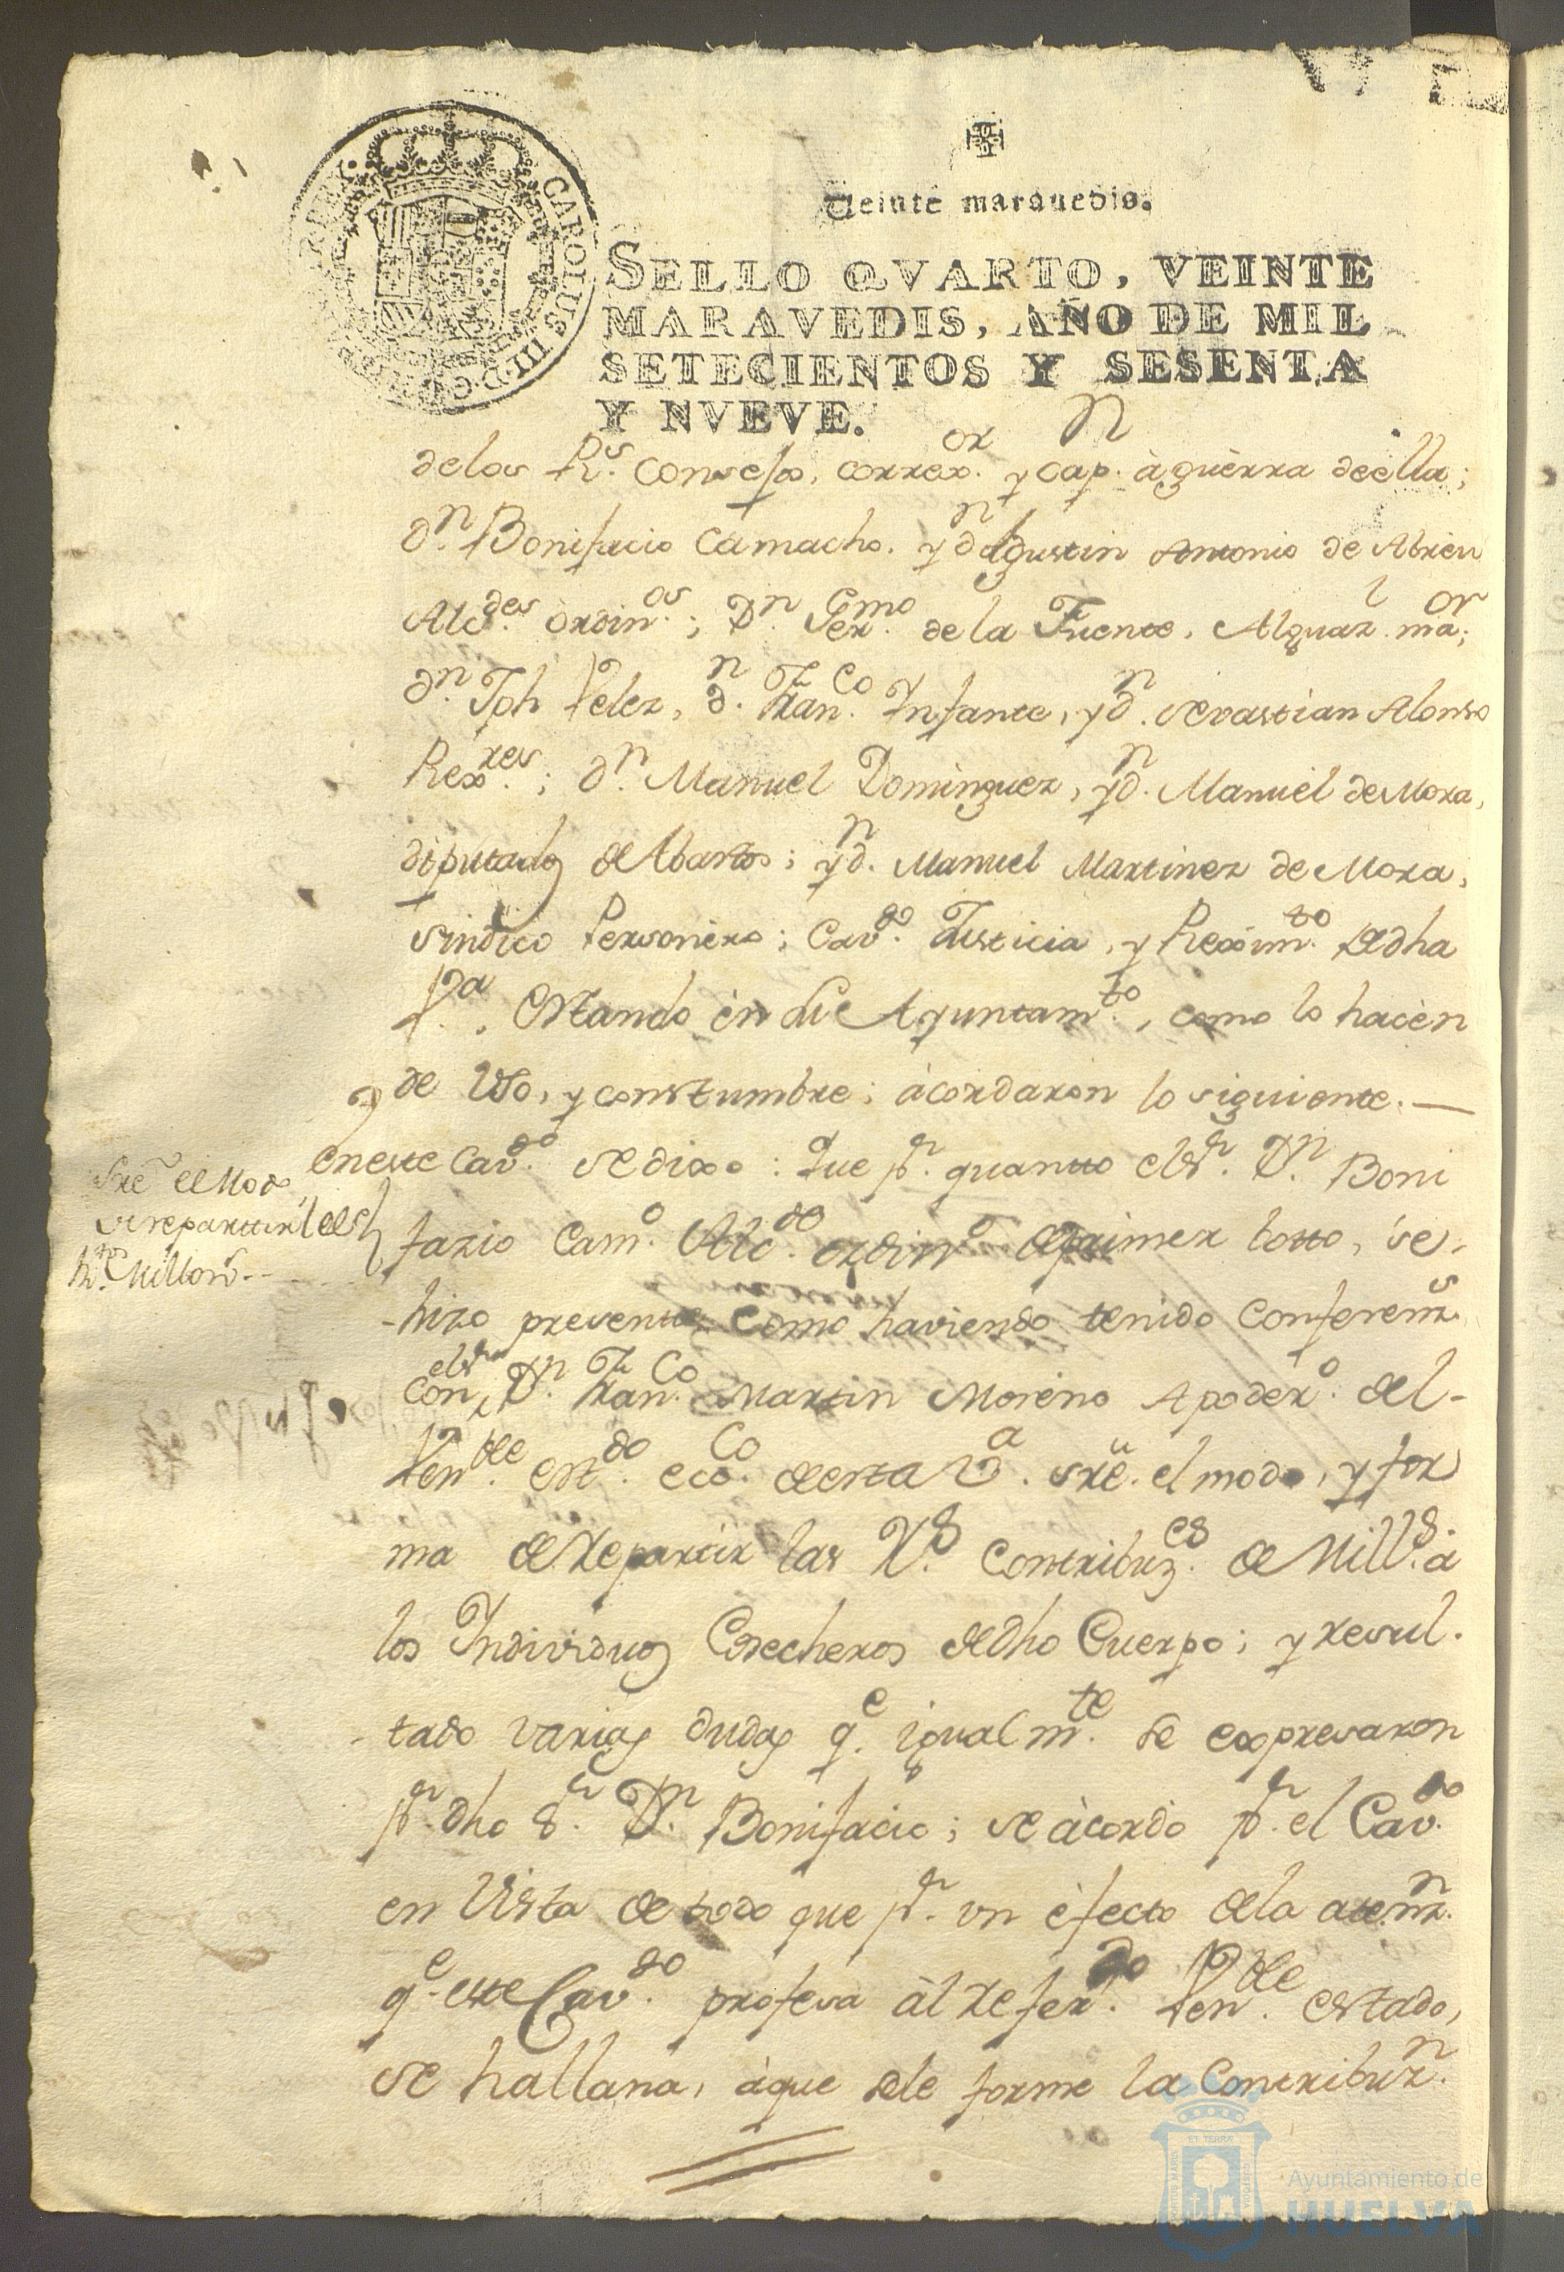 Veinte maravedis.
SELLO QVARTO, VEINTE
MARAVEDIS, AÑO DE MIL
SETECIENTOS Y SESENTA
Y NVEVE.
CAROLUS III. D. G.
delos R.s Consejos, correx.or y cap.n à guèrra deella;
d.n Bonifacio Camacho. y d.n Agustin Antonio de Abreu
Alc.des òrdin.os; D.n Ger.mo de la Fuente, Alguaz.l ma.or;
d.n Jph Velez, d.n Fran.co Infante, y d.n Sevastian Alonso
Rex.res; d.n Manuel Dominguez, y d.n Manuel de Mora,
diputados de Abastos; y d.n Manuel Martinez de Mora,
Sindico Personèro; Cav.do Justicia, y Rexim.to de dha
V.a, Estando èn su Ayuntam.to, como lo hacèn
de Uso, y constumbre; àcordaron lo siguiente.—
eneste Cav.do se dixo: Que p.r quantto el S.r D.n Boni
fazio Cam.o Alc.de ordin.o de primer botto, se
hizo presentte como haviendo tenido Conferenz.s
con el S.r D.n Fran.co Martin Moreno Apoder.o del
Ven.ble est.do ecc.co de esta V.a sre. el modo, y for
ma de repartir las R.s Contribuz.es de Mill.s à
los Individuos Cosecheros de dho Cuerpo; y resul
tado varias dudas q.e igualm.te se expresaron
p.r dho S.r D.n Bonifacio; se àcordò p.r el Cav.do
en Vista de todo que p.r un èfecto dela atenz.n
q.e este Cav.do profesa àl refer.do Ven.ble estado,
se hallana, àque sele forme la Contribuz.n
Sre el Modo
de repartir el
Millon.s
Ayuntamiento de
HUELVA